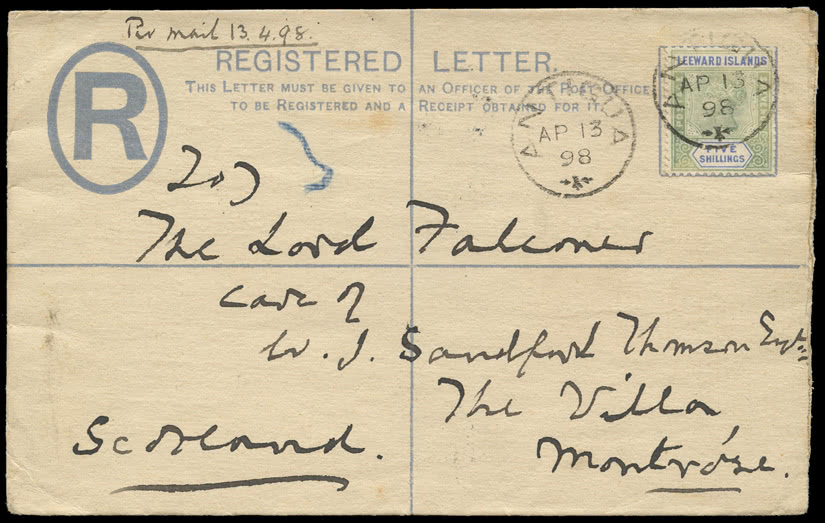 Per mail 13.4.98.
REGISTERED LETTER.
THIS LETTER MUST BE GIVEN TO AN OFFICER OF THE POST OFFICE
TO BE REGISTERED AND A RECEIPT OBTAINED FOR IT.
R
ANTIGUA
AP 13
98
LEEWARD ISLANDS
FIVE
SHILLINGS
ANTIGUA
AP 13
98
207
The Lord Falconer
care of
W. J. Sandford Thomson Esqre
The Villa,
Montrose.
Scotland.